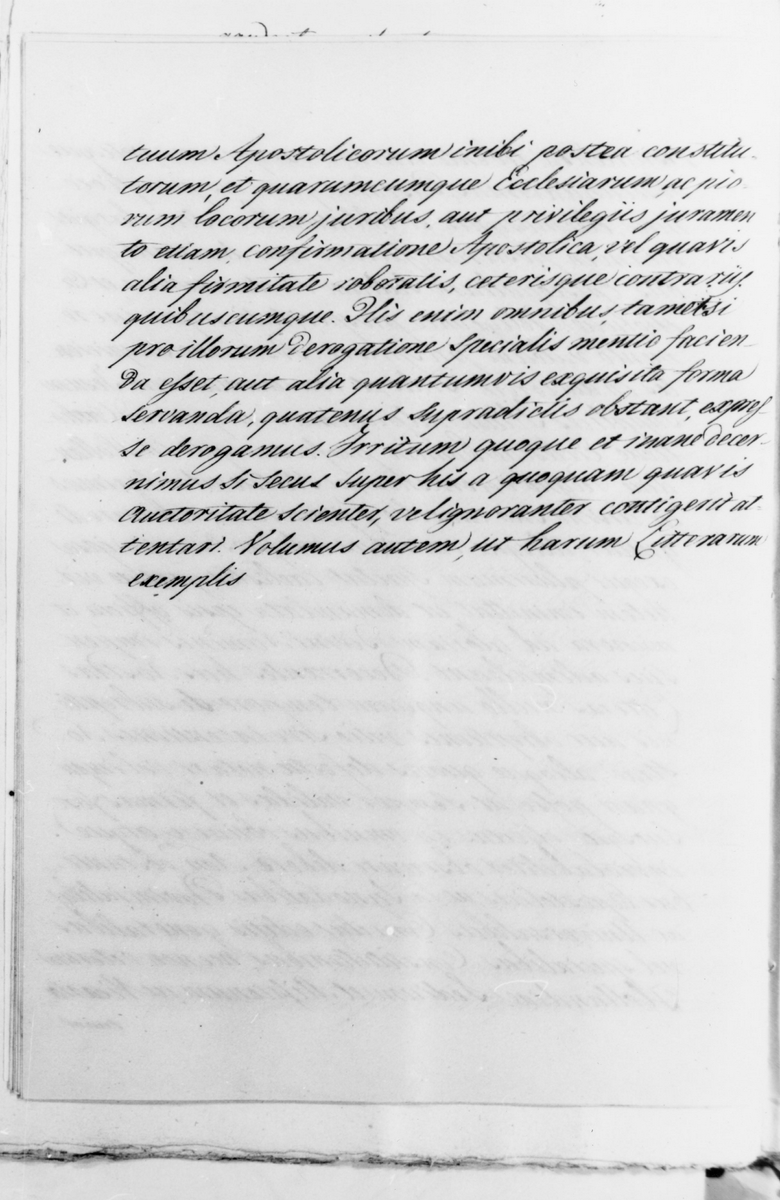 tuum Apostolicorum inibi postea constitu-
torum, et quarumcumque Ecclesiarum, ac pio-
rum locorum juribus, aut privilegiis juramen
to etiam, confirmatione Apostolica, vel quavis
alia firmitate roboratis, ceterisque contrariis
quibuscumque. Illis enim omnibus, tametsi
pro illorum derogatione specialis mentio facien-
da esset, aut alia quantumvis exquisita forma
servanda, quatenus supradictis obstant, expres-
se derogamus. Irritum quoque et inane decer-
nimus si secus super his a quoquam quavis
Auctoritate scienter, vel ignoranter contigerit at-
tentari. Volumus autem, ut harum Litterarum
exemplis